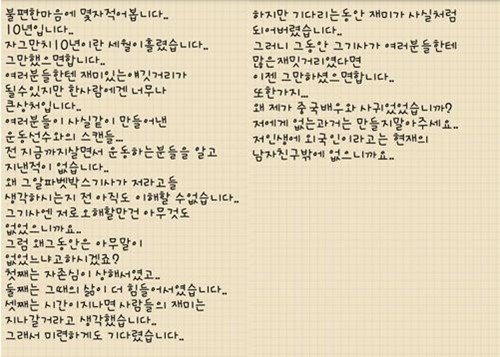 불편한마음에 몇자적어봅니다..
10년입니다..
자그만치10년이란 세월이흘렸습니다..
그만했으면합니다..
여러분들한텐 재미있는얘깃거리가
될수있지만 한사람에겐 너무나
큰상처입니다..
여러분들이 사실같이 만들어낸
운동선수와의 스캔들...
전 지금까지살면서 운동하는분들을 알고
지낸적이 없습니다..
왜 그알파벳박스기사가 저라고들
생각하시는지 전 아직도 이해할 수없습니다..
그기사엔 저로오해할만건 아무것도
없었으니까요..
그럼 왜그동안은 아무말이
없었느냐고하시겠죠?
첫째는 자존심이 상해서였고..
둘째는 그때의삶이 더 힘들어서였습니다..
셋째는 시간이지나면 사람들의 재미는
지나갈거라고 생각했습니다..
그래서 미련하게도 기다렸습니다..
하지만 기다리는동안 재미가 사실처럼
되어버렸습니다..
그러니 그동안 그기사가 여러분들한테
많은재밋거리였다면
이젠 그만하셨으면합니다..
또한가지...
왜 제가 중국배우와 사귀었었습니까?
저에게 없는과거는 만들지말아주세요..
저인생에 외국인이라고는 현재의
남자친구밖에 없으니까요..